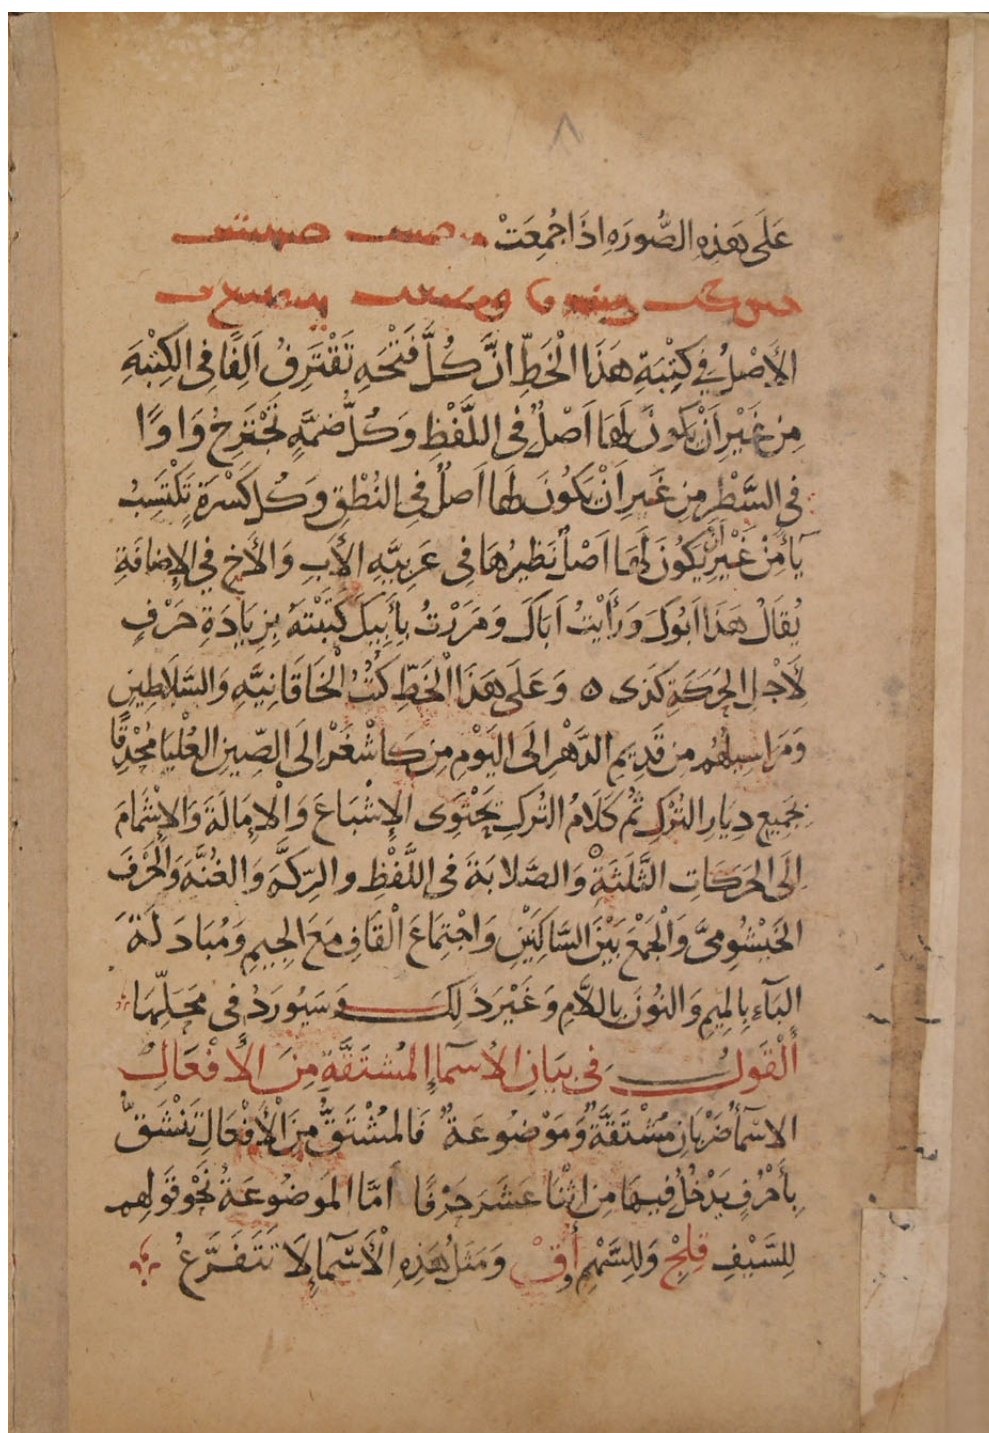 ٨
عَلَى هَذِهِ الصُّورَهِ اذَا جُمِعَتْ
الأَصْلُ فِي كِتْبَةِ هَذَا الْخَطِّ انَّ كُلَّ فَتْحَهٍ تَقْتَرِفُ اَلِفًا فِى الكِتْبَهِ
مِن غَيْرِ اَنْ يَكُونَ لَهَا اَصْلٌ فِى اللَّفْظِ وَكُلُّ ضَمَّهٍ تَجْتَرِحُ وَاوًا
فِى السَّطْرِ مِن غَيرِ اَنْ يَكُونَ لَها اَصلٌ فِى النُطْقِ وَكُل كَسْرَةٍ تَكْتَسِبُ
يَآءً مِنْ غَيْرِ أَنْ يَكُونَ لَهَا اَصْلٌ نَظيرُهَا فِى عَرِبيَّهِ الأَبِ وَالأَخِ فِي الإِضافَةِ
يُقَالُ هَذَا ابَوُكَ وَرأَيْتُ اَبَاكَ وَمَرَرْتُ بِأَبِيكَ كَتَبْتَهُ بِزِيَادَةِ حَرْفٍ
لأَجْلِ الحَرَكَةِ كَذَى ه وَعَلَى هَذَا الْخَطِّ كُتُبُ الْخَاقَانِيَّهِ وَالسَّلَاطِينِ
وَمَرَاسِلُهُم مِن قَدِيمِ الدَّهْرِ الَى اليَوْمِ مِن كَاشْغَرْ الَى الصِّينِ العُلْيَا مُحْدِقًا
بِجَمِيعِ دِيَارِ التُرْكِ ثُمَّ كَلَامُ التُركِ يَحْتَوِى الإِشْبَاعَ وَالْإِمَالَةَ وَالإِشْمَامَ
اِلَى الحَرَكَاتِ الثَّلثَةِ وَالصَّلابَةَ فِى اللَّفْظِ وَالرِكَّةَ وَالغُنَّهَ وَالْحَرْفَ
الخَيْشُومِىَّ وَالْجَمْعَ بَيْنَ السَّاكِنَيْنِ وَاجْتِمَاعَ الْقَافِ مَعَ الجِيمِ وَمُبَادَلَةَ
البَآءِ بِالمِيمِ وَالنُونَ بِاللَامِ وَغَيْرَ ذَلِكَ وَسَيُورَدُ فِى مَحَلِّهَا
أَلْقَولُ فِى بَيَانِ الأَسْمآءِ المُشتَقَّةِ مِنَ الأَفْعَالِ
الاسَمآءُ ضَرْبَانِ مُشْتَقَّةٌ وَمَوْضُوعَةٌ فَالمُشْتَقُّ مِنَ الْأَفْعَالِ تَنْشَقُّ
بِأَحْرُفٍ يَدْخُلُ فِيهَا مِن اثْنَا عَشَرَ حَرْفًا اَمَّا المَوضُوعَةُ نَحْوُ قَولِهِم
لِلسَّيْفِ قِلِجْ وَلِلسَّهْمِ أُوقْ وَمَثَلُ هَذِهِ الْأَسَمآءِ لَا تَتَفَرَّعُ